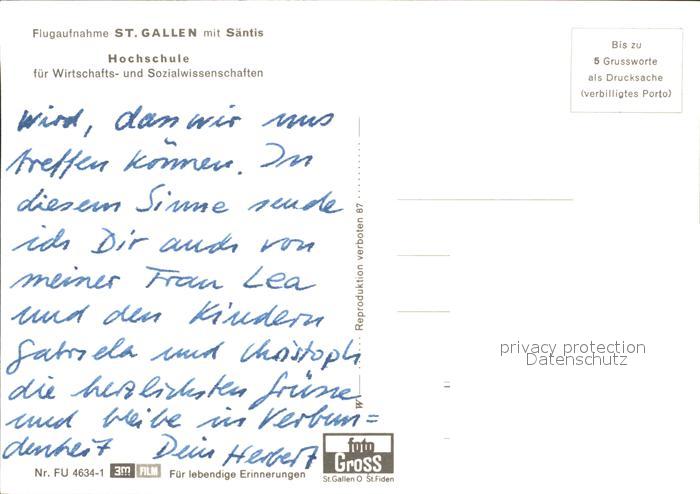 Flugaufnahme ST. GALLEN mit Säntis
Hochschule
für Wirtschafts- und Sozialwissenschaften
Bis zu
5 Grussworte
als Drucksache
(verbilligtes Porto)
wird, dass wir uns
treffen können. In
diesem Sinne sende
ich Dir auch von
meiner Frau Lea
und den Kindern
Gabriela und Christoph
die herzlichsten Grüsse
und bleibe in Verbun=
denheit Dein Herbert
Reproduktion verboten 87
privacy protection
Datenschutz
foto
Gross
St.Gallen O St.Fiden
Nr. FU 4634-1 3m FILM Für lebendige Erinnerungen